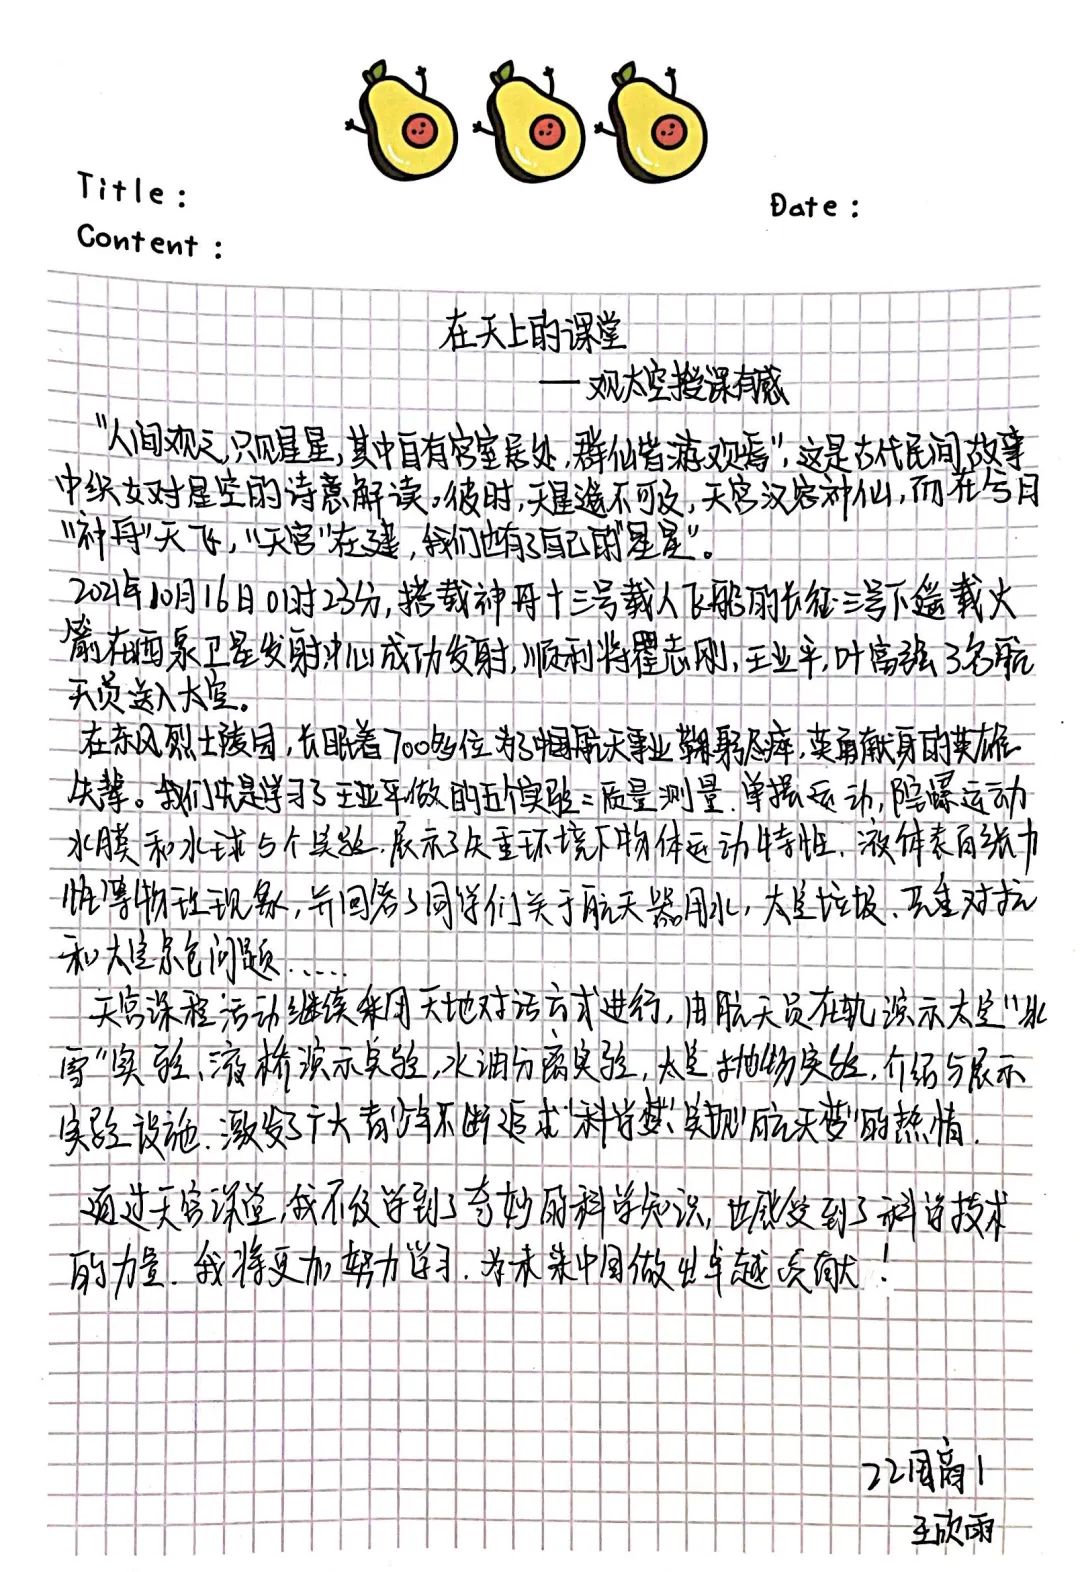 Title：
Date：
Content：
在天上的课堂
——观太空授课有感
"人间观之，只见星星，其中自有宫室居处，群仙皆游观焉"，这是古代民间故事
中织女对星空的诗意解读。彼时，天星遥不可及，天宫汉宫神仙，而在今月
"神舟"天飞，"天宫"在建，我们也有了自己的"星星"。
2021年10月16日01时23分，搭载神舟十三号载人飞船的长征三号下遥载火
箭在酒泉卫星发射中心成功发射，顺利将翟志刚，王亚平，叶富强3名航
天员送入太空。
在东风烈士陵园，长眠着700多位为了中国航天事业鞠躬尽瘁，英勇献身的英雄
先辈。我们先是学习了王亚平做的五个实验：质量测量．单摆运动，陀螺运动
水膜和水球5个实验．展示了失重环境下物体运动特性、液体表面张力
性等物理现象，并回答了同学们关于航天器用水，太空垃圾．失重对抗
和太空景色问题……
天宫课程活动继续采用天地对话方式进行，由航天员在轨演示太空"冰
雪"实验、液桥演示实验，水油分离实验，太空抛物实验，介绍与展示
实验设施．激发了广大青少年不断追求"科学梦"、实现"航天梦"的热情．
通过天宫课堂，我不仅学到了奇妙的科学知识，也感受到了科学技术
的力量．我将更加努力学习．为未来中国做出卓越贡献！
22国商1
王欣雨